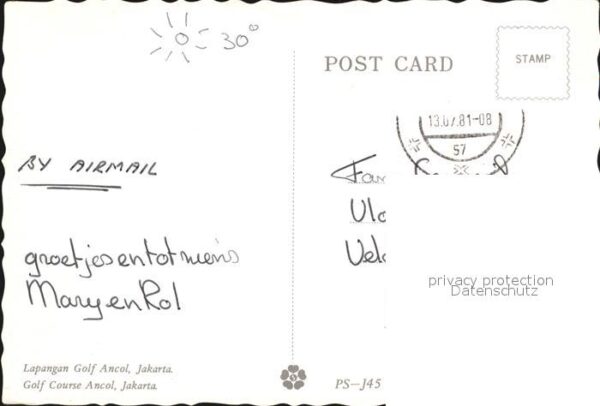 30°
POST CARD
STAMP
13.07.81-08
57
BY AIRMAIL
Fam
Vlo
Veld
groetjes en tot ziens
Mary en Rol
privacy protection
Datenschutz
Lapangan Golf Ancol, Jakarta.
Golf Course Ancol, Jakarta.
PS—J45